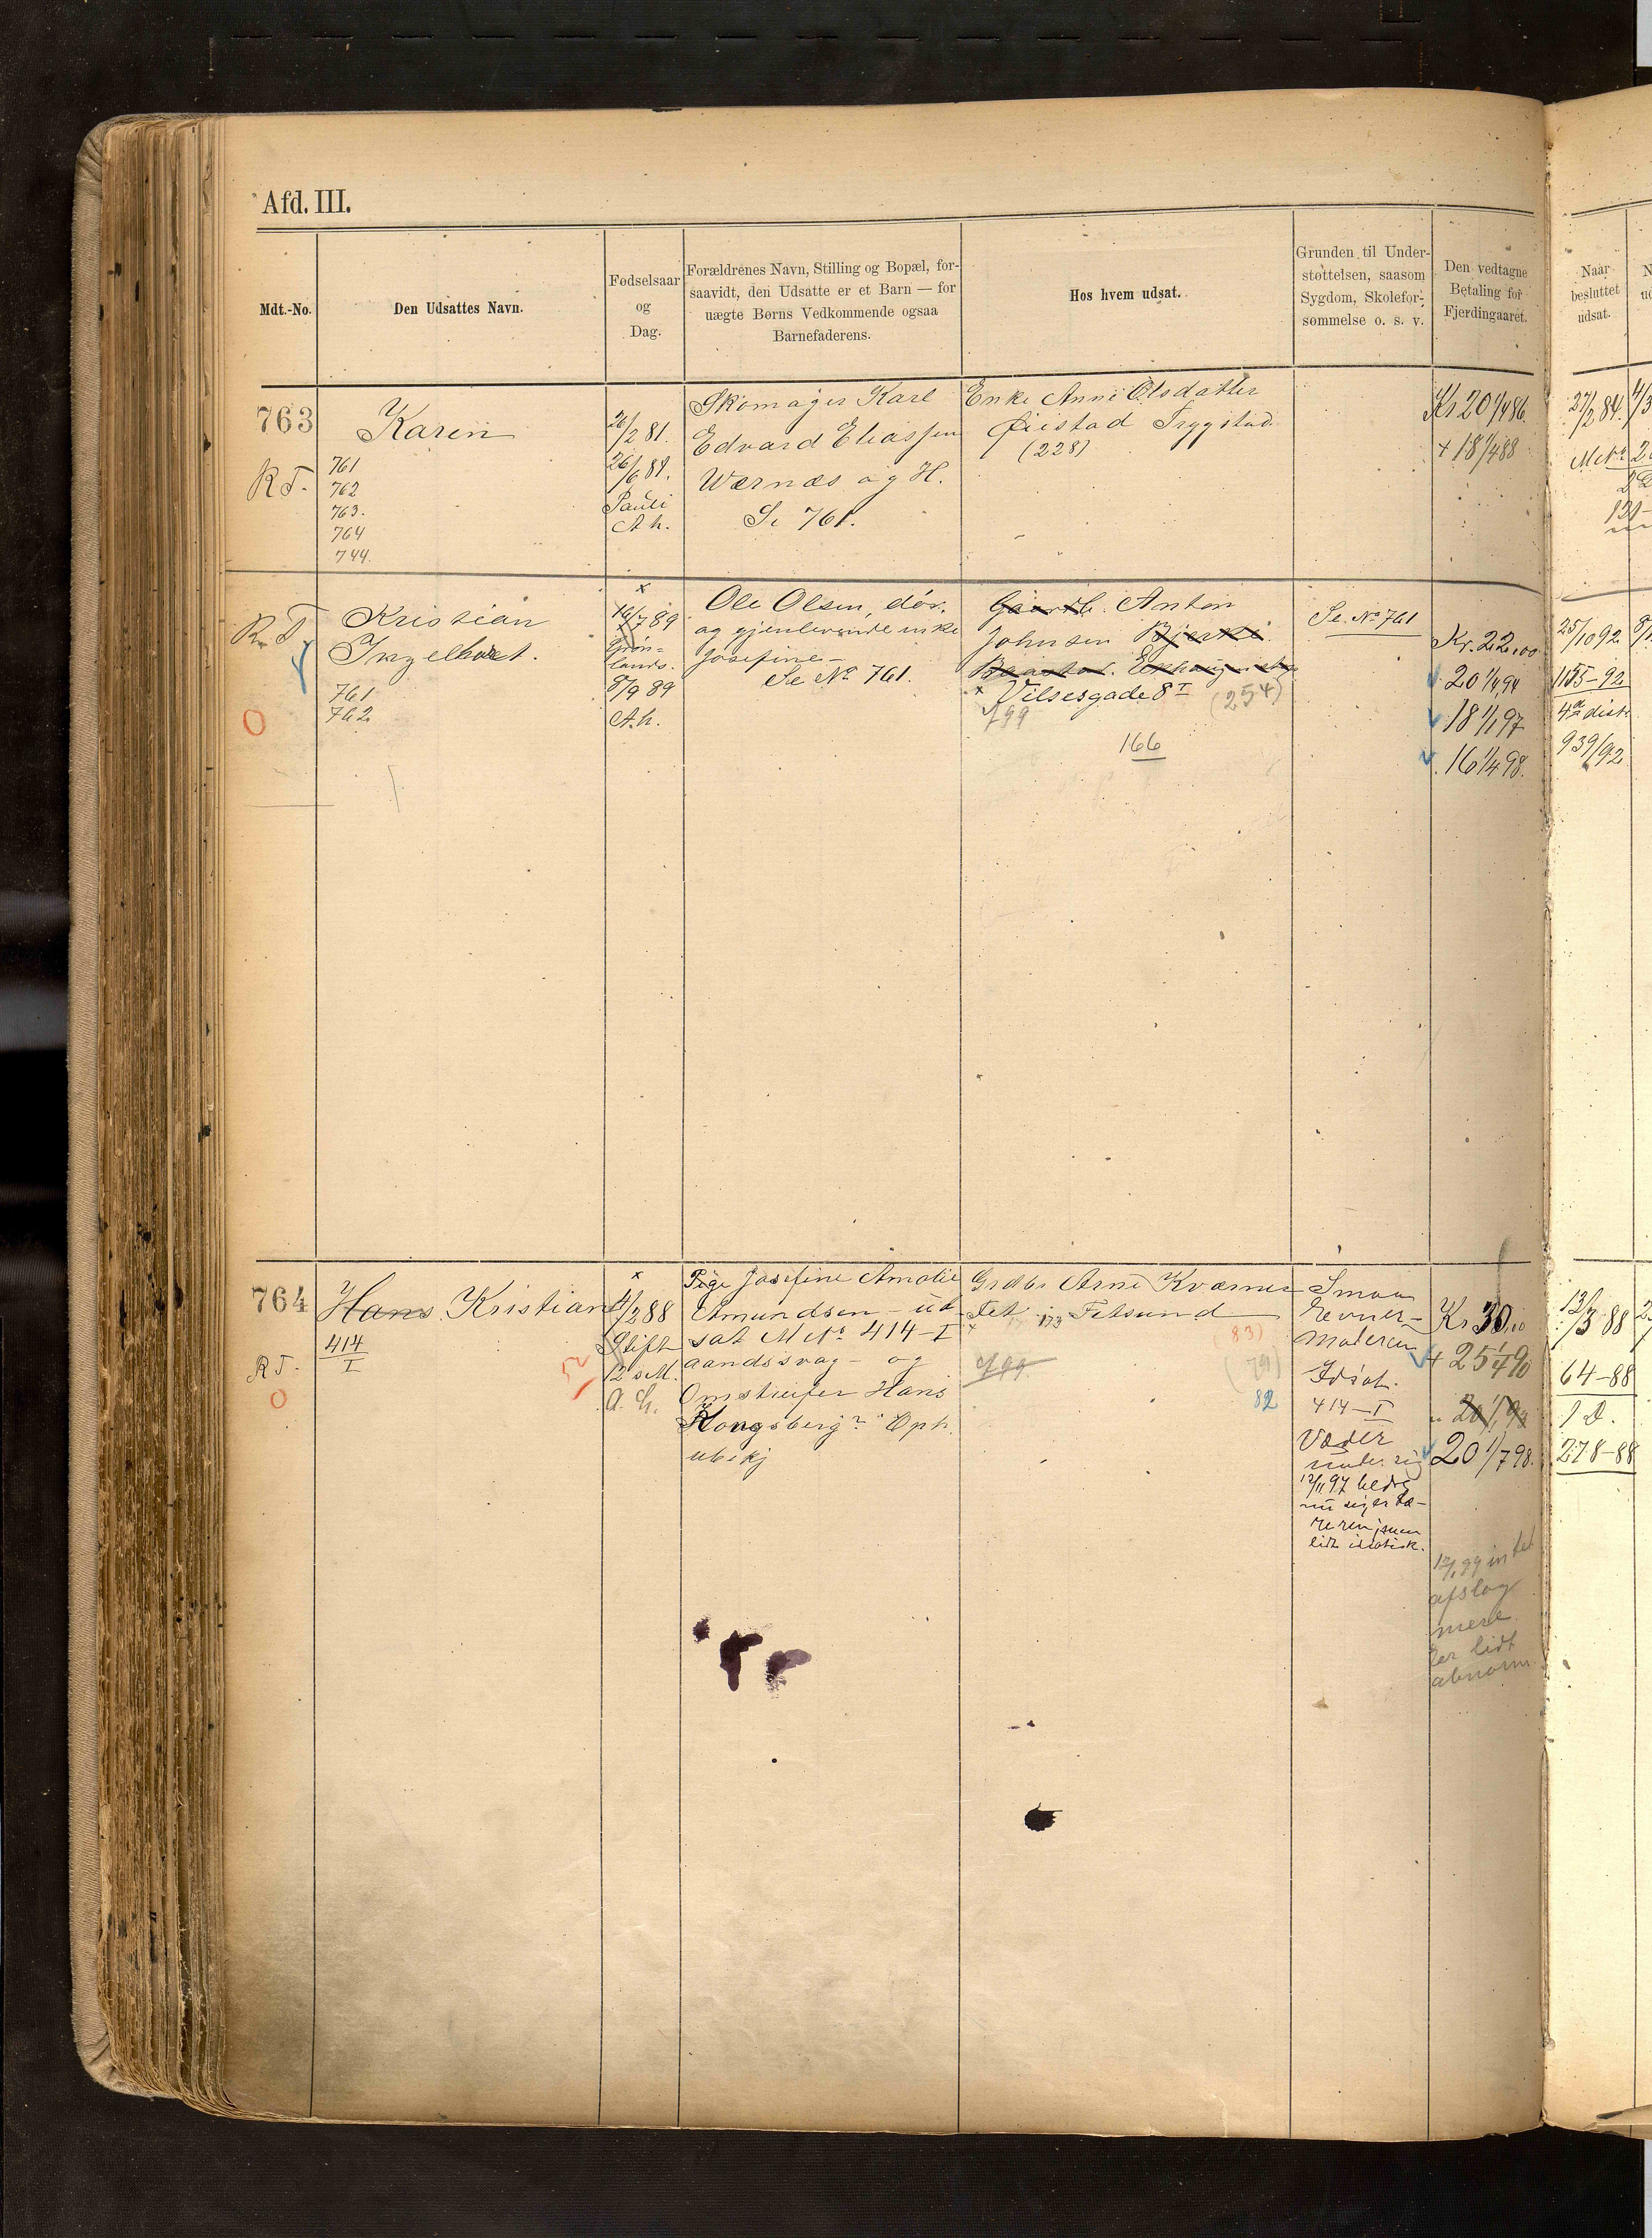 Afd. III.
Mdt.-No.
Den Udsattes Navn.
Fødselsaar
og
Dag.
Forældrenes Navn, Stilling og Bopæl, for-
saavidt, den Udsatte er et Barn — for
uægte Børns Vedkommende ogsaa
Barnefaderens.
Hos hvem udsat.
Grunden til Under-
støttelsen, saasom
Sygdom, Skolefor-
sømmelse o. s. v.
Den vedtagne
Betaling for
Fjerdingaaret.
Naar
besluttet
udsat.
763
R T.
Karen
761
762
763.
764
744.
26/2 81.
26/6 81.
Pauli
A h.
Skomager Karl
Edvard Eliassen
Wærnæs og H.
Se 761.
Enke Anne Olsdatter
Øiestad Trygstad
(228)
Kr 20 1/4 86
+ 18 1/4 88
27/2 84.
R. T
Kristian
Ingelbret.
761
762
O
x
16/7 89
Grøn-
lands.
8/9 89
A.h.
Ole Olsen, død.
og gjenlevende enke
Josefine –
Se No 761.
Gaardb. Anton
Johnsen Bjerke
x Vilsesgade 8 I (254)
199
166
Se. No 761
Kr. 22,00
20 1/4 94
18 1/1 97
16 1/4 98.
25/10 92
1155–92
4de distr
939/92
764
R T.
O
Hans Kristian
414
I
x
4/2 88
Stift
12 s M.
a. h.
Pige Josefine Amalie
Amundsen – ud
sat M No 414–I
aandssvag – og
Omstreifer Hans
Kongsberg? Oph.
ubekj
Grdbr Arne Kværner
Fet 173 Fetsund
(83)
(79)
82
199
Smaa
Evner –
Moderen
Idiot.
414–I
Væder
under sig
12/11 97 bedre
nu siger Læ-
reren, men
lidt idiotisk.
Kr 30,00
+ 25 1/4 90
20 1/7 98.
12/1 99 intet
afslag
mere
er lidt
abnorm.
13/3 88
64–88
1 D.
278–88